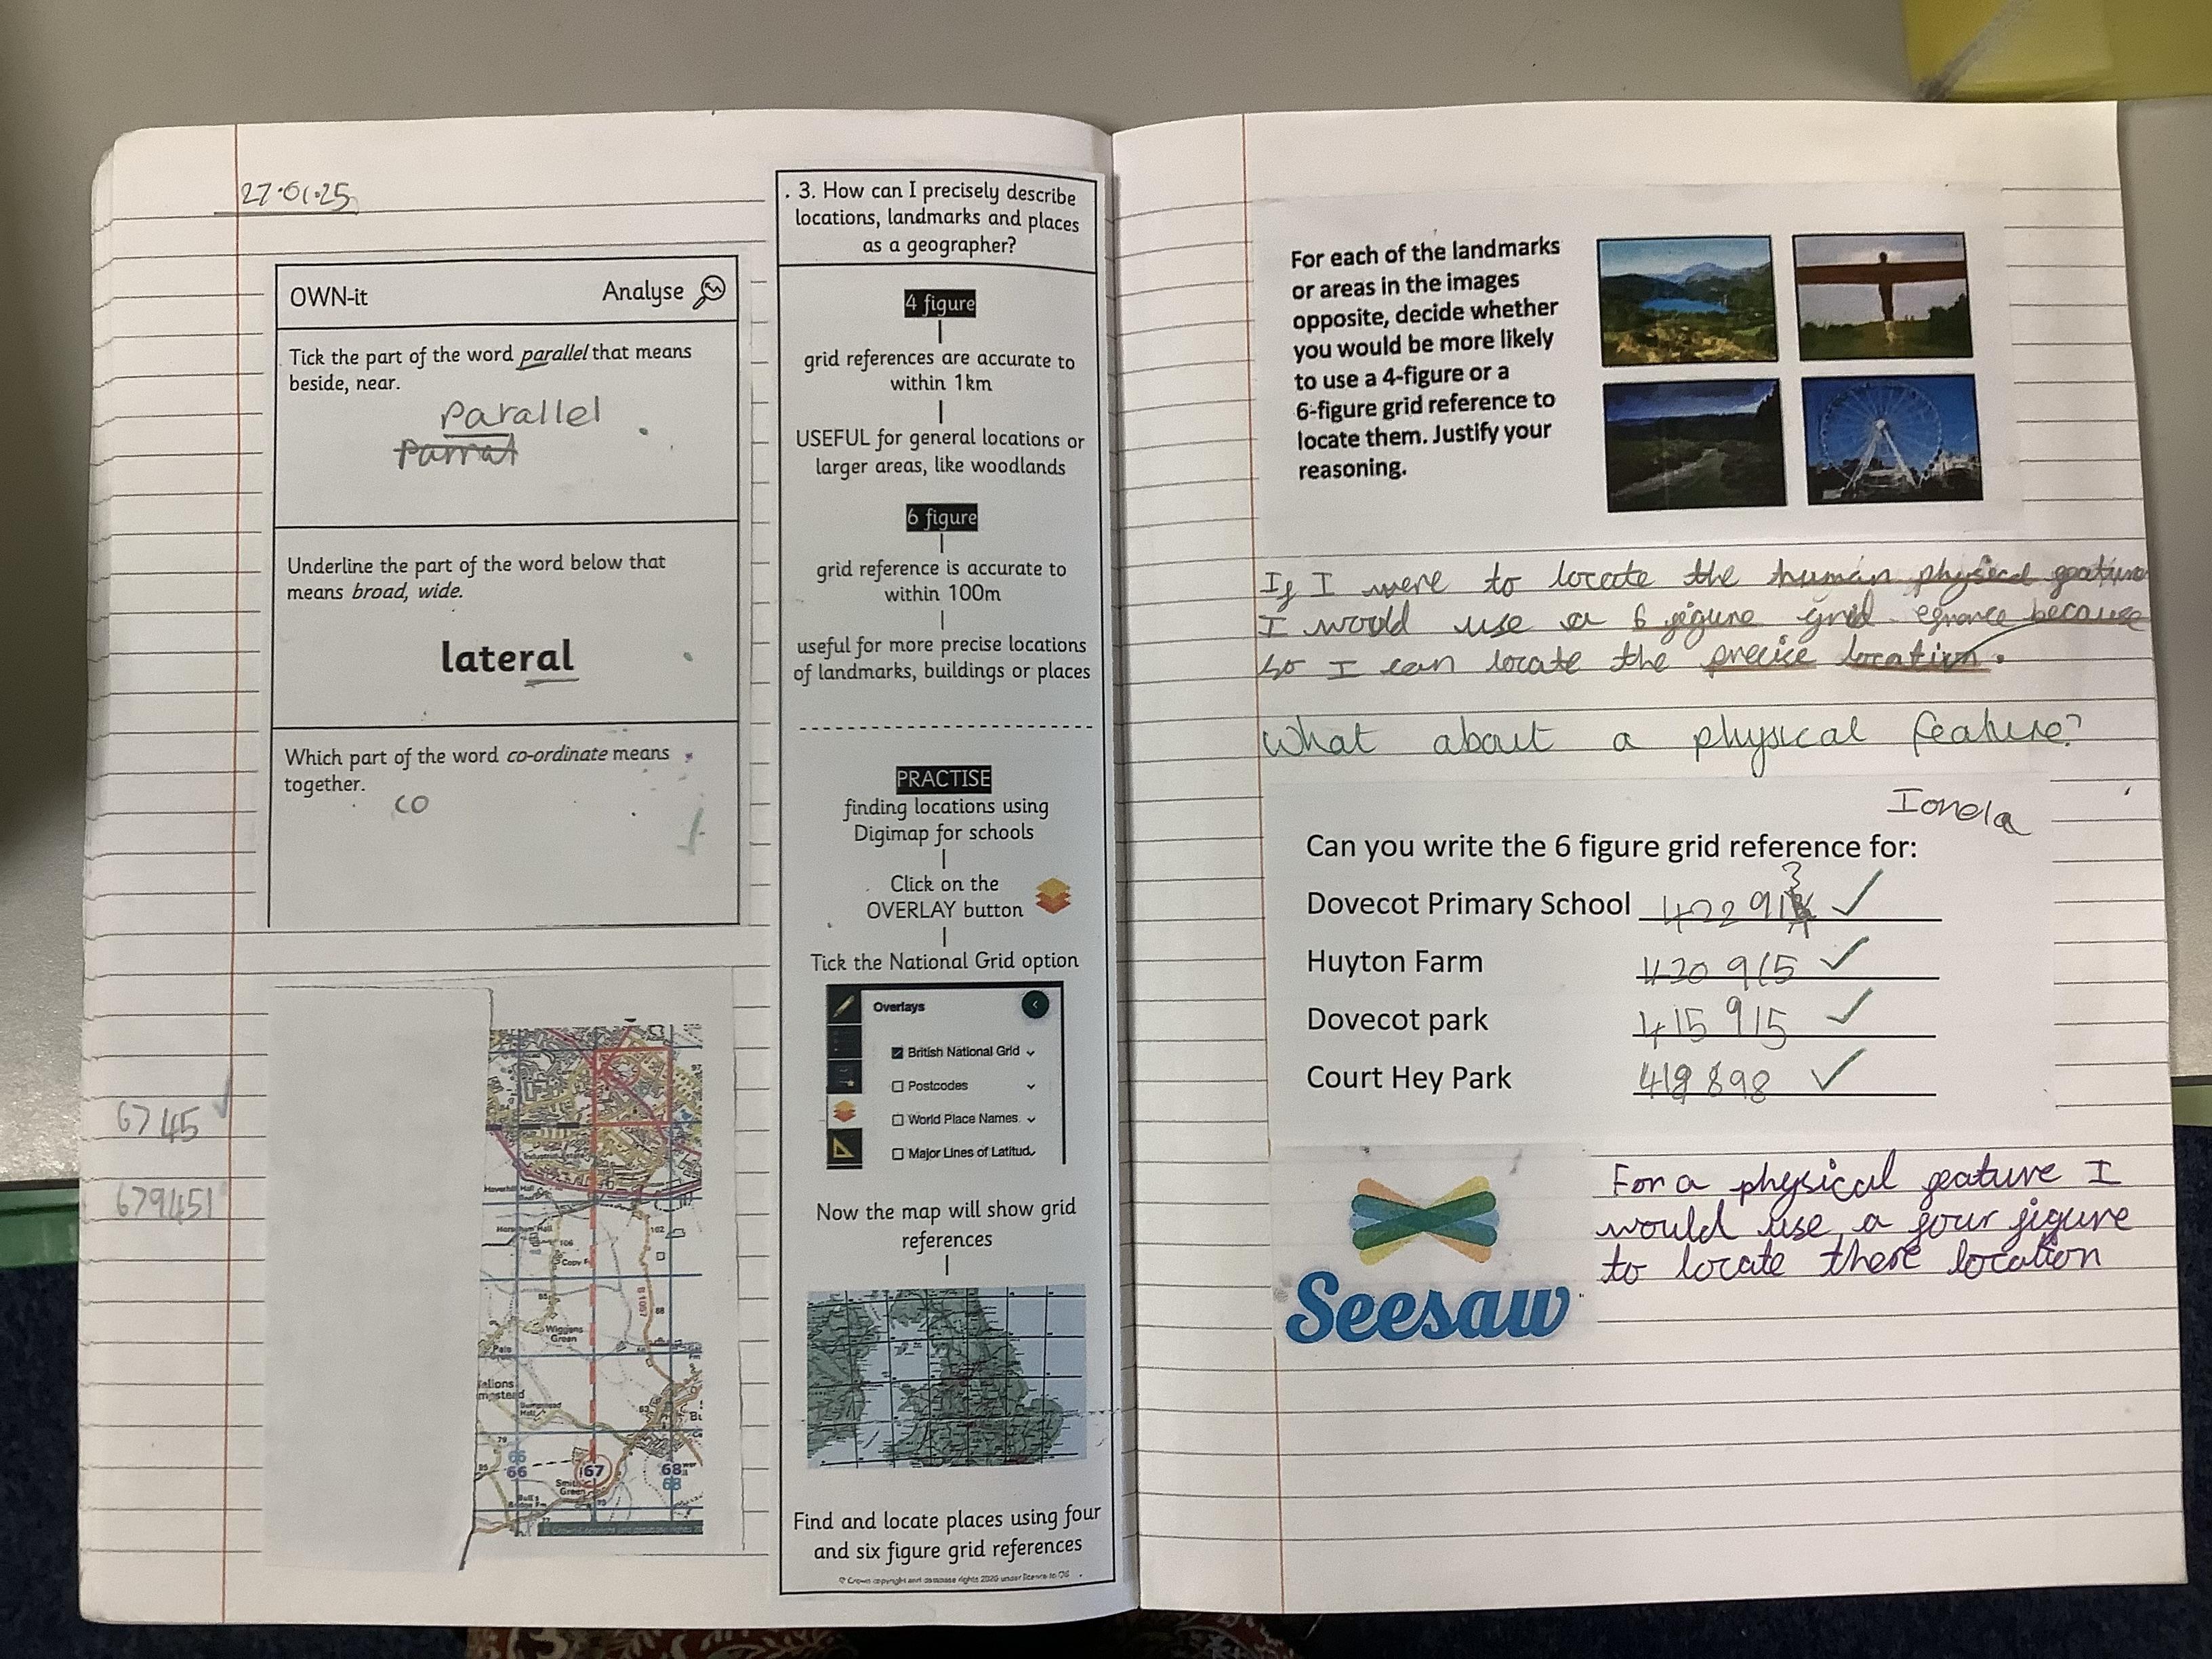 27.01.25
OWN-it Analyse
Tick the part of the word parallel that means
beside, near.
Parallel
Underline the part of the word below that
means broad, wide.
lateral
Which part of the word co-ordinate means
together.
co
6745
679451
Wiggens
Green
66
66
67
68
68
Smith's
Green
B 1057
. 3. How can I precisely describe
locations, landmarks and places
as a geographer?
4 figure
grid references are accurate to
within 1km
USEFUL for general locations or
larger areas, like woodlands
6 figure
grid reference is accurate to
within 100m
useful for more precise locations
of landmarks, buildings or places
PRACTISE
finding locations using
Digimap for schools
Click on the
OVERLAY button
Tick the National Grid option
Overlays
British National Grid
Postcodes
World Place Names
Major Lines of Latitud
Now the map will show grid
references
Find and locate places using four
and six figure grid references
© Crown copyright and database rights 2020 under licence to OS
For each of the landmarks
or areas in the images
opposite, decide whether
you would be more likely
to use a 4-figure or a
6-figure grid reference to
locate them. Justify your
reasoning.
If I were to locate the human physical geature
I would use a 6 figure grid egrance because
so I can locate the precise location.
What about a physical feature?
Ionela
Can you write the 6 figure grid reference for:
Dovecot Primary School 422 913
Huyton Farm 420 915
Dovecot park 415 915
Court Hey Park 419 898
Seesaw
For a physical geature I
would use a four figure
to locate these location